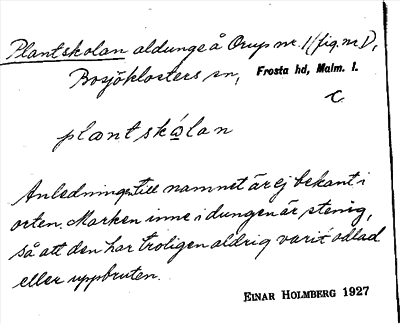 Plantskolan aldunge å Orup nr. 1 (fig. nr 1),
Bosjöklosters sn, Frosta hd, Malm. l.
C
plantskålan
Anledningen till namnet är ej bekant i
orten. Marken inne i dungen är stenig,
så att den har troligen aldrig varit odlad
eller uppbruten.
EINAR HOLMBERG 1927